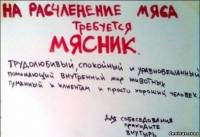 НА РАСЧЛЕНЕНИЕ МЯСА
ТРЕБУЕТСЯ
МЯСНИК.
ТРУДОЛЮБИВЫЙ, СПОКОЙНЫЙ И УРАВНОВЕШАННЫЙ
ПОНИМАЮЩИЙ ВНУТРЕННИЙ МИР ЖИВОТНЫХ
ГУМАННЫЙ К КЛИЕНТАМ И ПРОСТО ХОРОШИЙ ЧЕЛОВЕК.
ДЛЯ СОБЕСЕДОВАНИЯ
ПРОХОДИТЕ
ВНУТЫРЬ